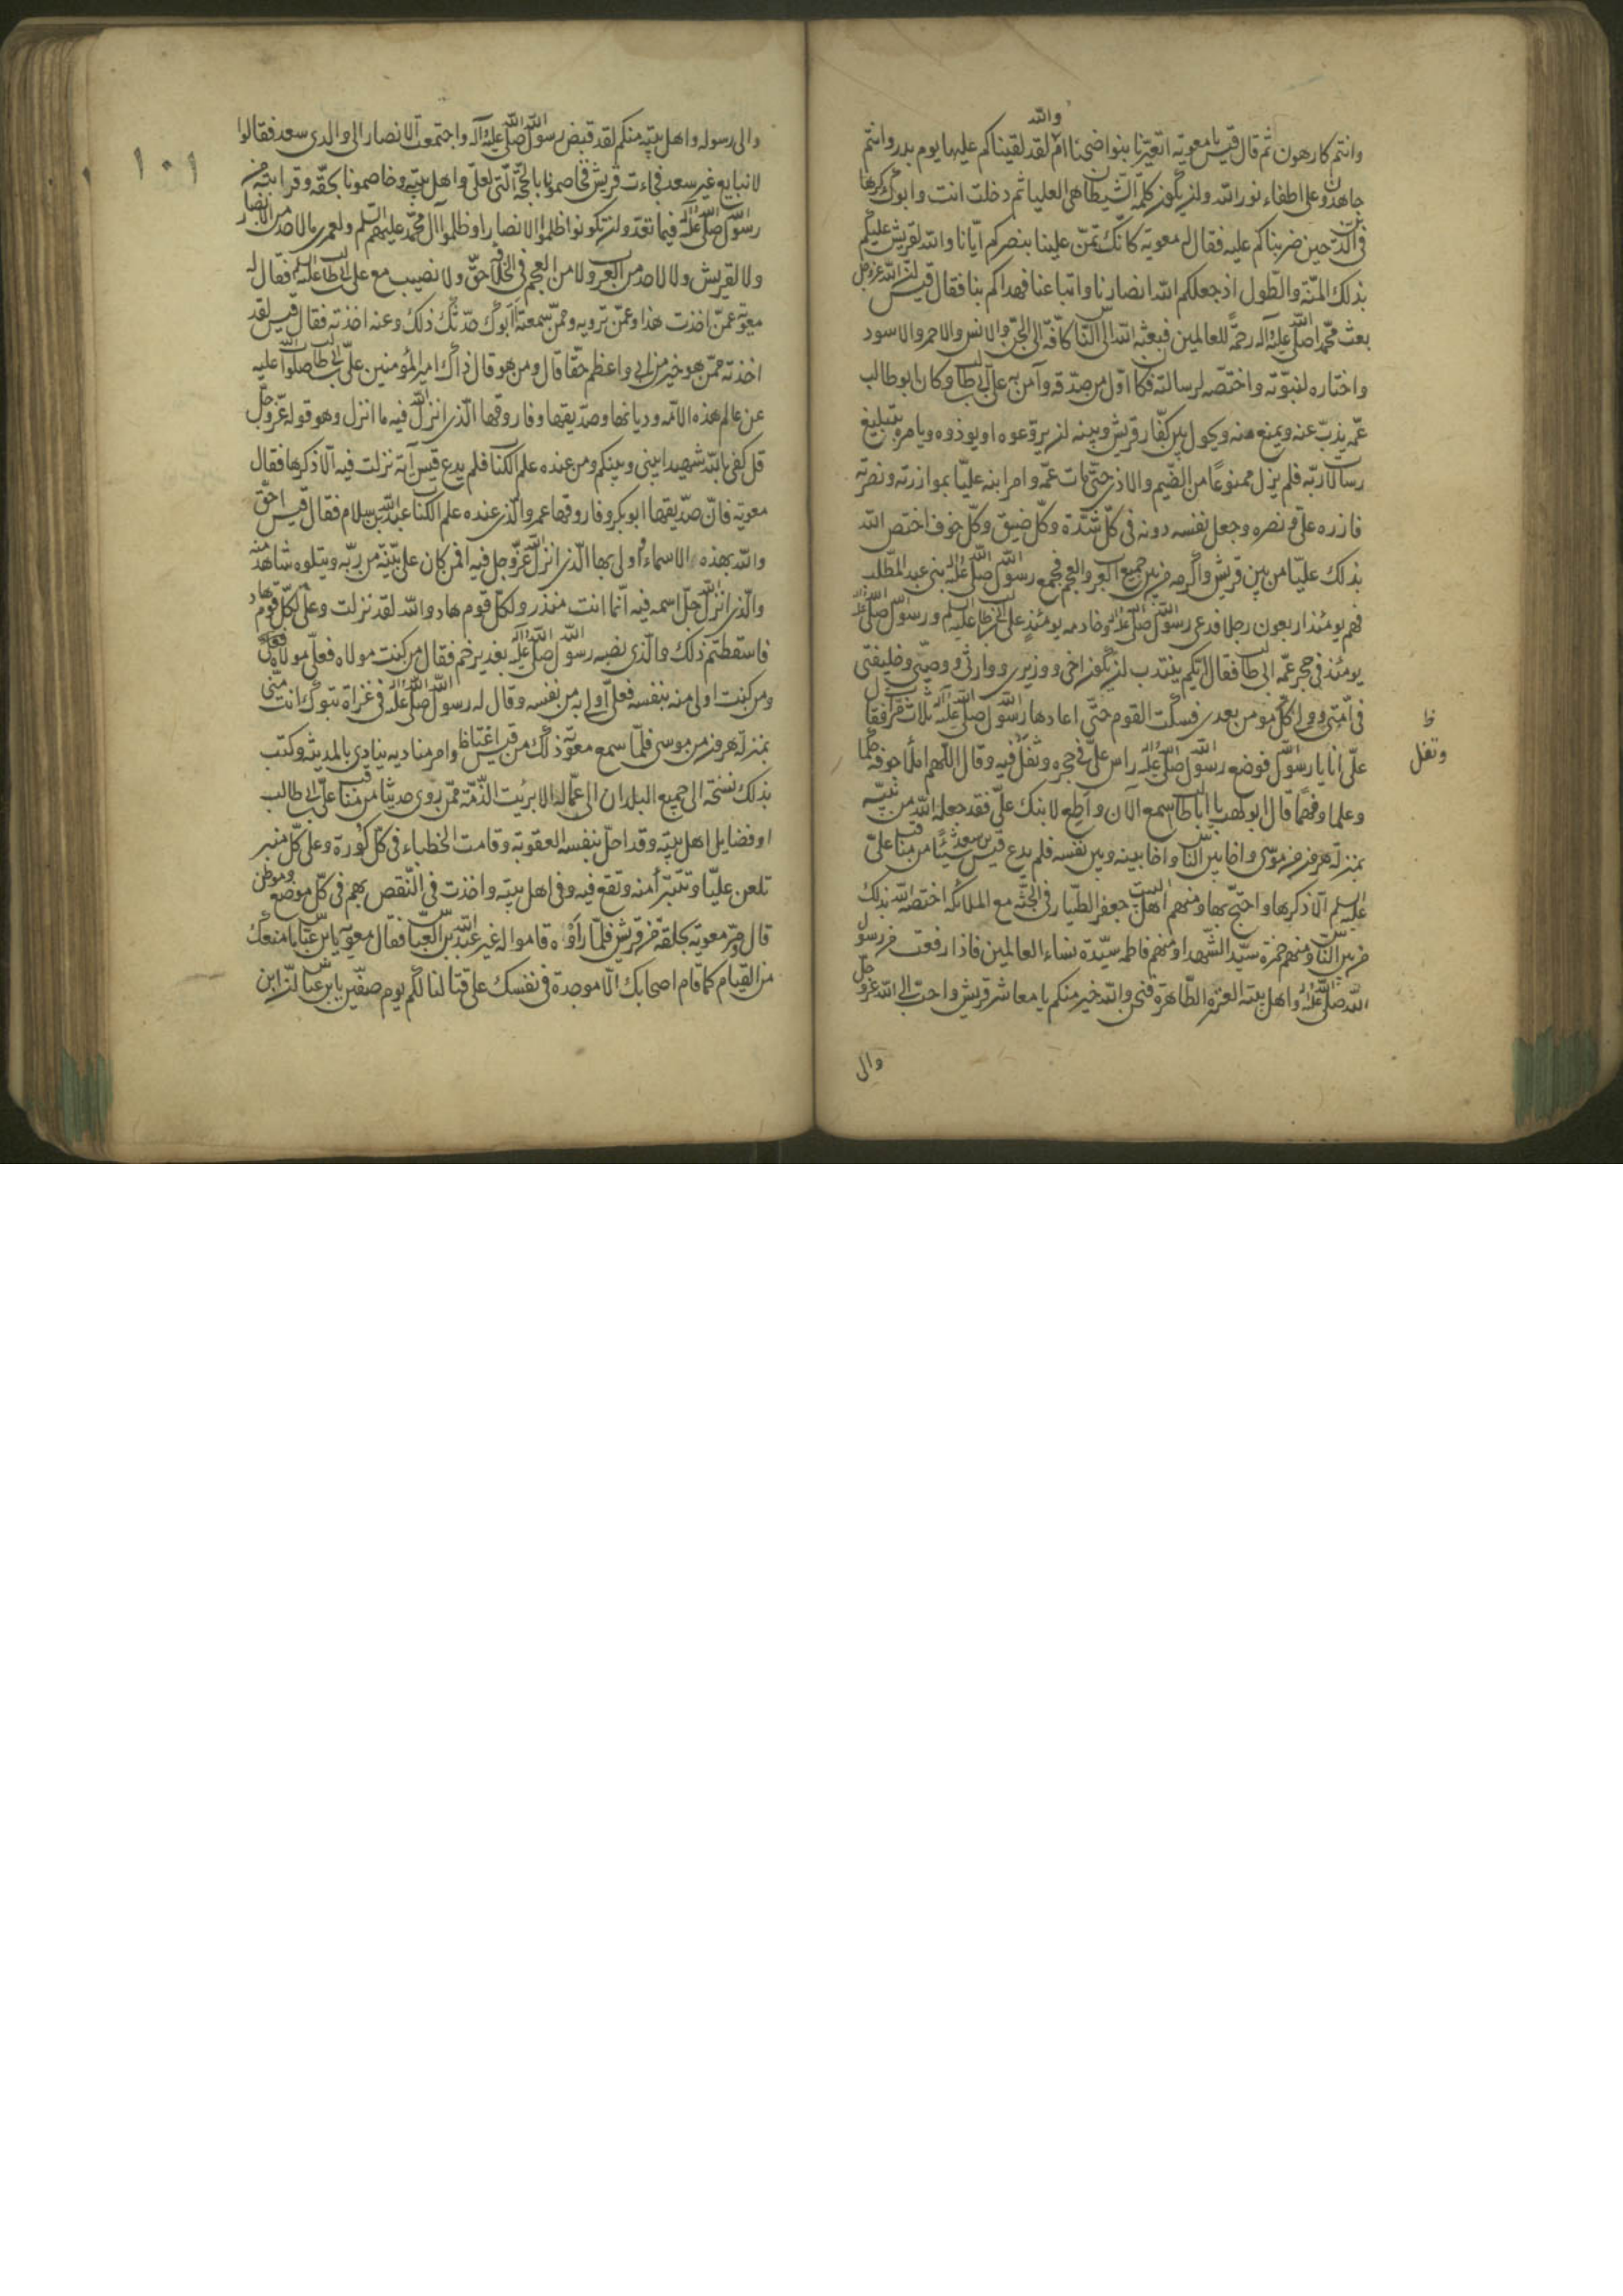 وانتم كارهون ثم قال قيس يا معوية اتعيّرنا بنواضحنا اَمْ والله لقد لقيناكم عليها يوم بدر وانتم
جاهدون على اطفاء نور الله وان يكون كلمة الشيطان هى العليا ثم دخلت انت وابوك كرها
فى الدين حين ضربناكم عليه فقال له معوية كانّك تمنّ علينا بنصركم ايّانا والله لقريش عليكم
بذلك المنّة والطّول اذ جعلكم الله انصارنا واتباعنا فهداكم بنا فقال قيس انّ الله عزوجل
بعث محمّدا صلى الله عليه وآله رحمة للعالمين فبعثه الله الى النّاس كافّة الى الجنّ والانس والاحمر والاسود
واختاره لنبوّته واختصّه لرسالته فكان اوّل من صدّقه وآمن به على بن ابى طالب وكان ابو طالب
عمّه يذبّ عنه ويمنع منه ويحول بين كفّار قريش وبينه ان يروّعوه او يوذوه ويامره بتبليغ
رسالات ربّه فلم يزل ممنوعًا من الضّيم والاذى حتّى مات عمّه وامر ابنه عليّا بموازرته ونصرته
فازره علىّ ونصره وجعل نفسه دونه فى كلّ شدّة وكلّ ضيق وكلّ خوف اختص الله
بذلك عليّا من بين قريش واكرمه من بين جميع العرب والعجم فجمع رسول الله صلى الله عليه وآله بنى عبد المطّلب
فهم يومئذ اربعون رجلا فدعى رسول الله صلى الله عليه وآله وخادمه يومئذٍ على بن ابى طالب عليه السلم ورسول الله صلى الله عليه وآله
يومئذ فى حجر عمّه ابى طالب فقال ايّكم ينتدب ان يكون اخى ووزيرى ووارثى ووصيّى وخليفتى
فى امّتى وولى كلّ مومن بعدى فسكت القوم حتّى اعادها رسول الله صلى الله عليه وآله ثلاث مرّات فقال
علىّ انا يا رسول الله فوضع رسول الله صلى الله عليه وآله راس علىّ فى حجره وثفل فيه وقال اللّهم املأ جوفه حلما
وعلما وفهمًا قال ابو لهب يا ابا طالب اسمع الآن واَطِع لابنك علىّ فقد جعله الله من نبيّه
بمنزلة هرون من موسى واخا بين النّاس واخا بينه وبين نفسه فلم يدع قيس بن سعد شيئًا من مناقب علىّ
عليه السلم الّا ذكرها واحتجّ بها ومنهم اهل البيت جعفر الطيّار فى الجنّة مع الملائكة اختصّه الله بذلك
من بين النّاس ومنهم حمزة سيّد الشّهداء ومنهم فاطمه سيّدة نساء العالمين فاذا رفعت من رسول
الله صلى الله عليه وآله واهل بيته العترة الطّاهرة فنحن والله خير منكم يا معاشر قريش واحبّ الى الله عزوجل
والى
ظ
وتفل
١٠١
والى رسوله واهل بيته منكم لقد قبض رسول الله صلى الله عليه وآله واجتمعت الانصار الى والدى سعد فقالوا
لا نبايع غير سعد فجاءت قريش فخاصمونا بالحجّة الّتى لعلىّ واهل بيته وخاصمونا بحقّه وقرابته من
رسول الله صلى الله عليه وآله فيما تعدّ وان يكونوا ظلموا الانصار او ظلموا آل محمّد عليهم السّلم ولعمرى ما لاحد من الانصار
ولا لقريش ولا لاحد من العرب ولا من العجم فى الخلافة حقّ ولا نصيب مع على بن ابى طالب عليه السلم فقال له
معوية عمّن اخذت هذا وعمّن ترويه وممّن سمعته اابوك حدّثك ذلك وعنه اخذته فقال قيس لقد
اخذته ممّن هو خير من ابى واعظم حقّا قال ومن هو قال ذاك امير المؤمنين علىّ بن ابى طالب صلوات الله عليه
عن عالم هذه الامّه وديانها وصدّيقها وفاروقها الّذى انزل الله فيه ما انزل وهو قوله عزّوجلّ
قل كفى بالله شهيدا بينى وبينكم ومن عنده علم الكتاب فلم يدع قيس آية نزلت فيه الّا ذكرها فقال
معوية فانّ صدّيقها ابو بكر وفاروقها عمر والّذى عنده علم الكتاب عبد الله بن سلام فقال قيس احقّ
والله بهذه الاسماء واولى بها الّذى انزل الله عزّوجل فيه افمن كان على بيّنة من ربّه ويتلوه شاهد منه
والّذى انزل الله جلّ اسمه فيه انّما انت منذر ولكلّ قوم هاد والله لقد نزلت وعلىّ لكلّ قوم هاد
فاسقطتم ذلك والّذى نصبه رسول الله صلى الله عليه وآله بغدير خم فقال من كنت مولاه فعلىّ مولاه
ومن كنت اولى منه بنفسه فعلىّ اولى به من نفسه وقال له رسول الله صلى الله عليه وآله فى غزاة تبوك انت منّى
بمنزلة هرون من موسى فلمّا سمع معوية ذلك من قيس اغتاظ وامر مناديه ينادى بالمدينة وكتب
بذلك نسخة الى جميع البلدان الى عمّاله الا برئيت الذّمّة ممّن روى حديثا من مناقب على بن ابى طالب
او فضايل اهل بيته وقد احلّ بنفسه العقوبة وقامت الخطباء فى كلّ كُورة وعلى كلّ منبر
تلعن عليّا وتتبرّأ منه وتقع فيه وفى اهل بيته واخذت فى النّقص بهم فى كلّ موضع وموطن
قال ومرّ معوية بحلقة من قريش فلمّا رأَوْه قاموا له غير عبد الله بن العبّاس فقال معوية يا بن عبّاس ما منعك
من القيام كما قام اصحابك الّا موجدة فى نفسك على قتالنا لكم يوم صفّين يا بن عبّاس انّ ابن